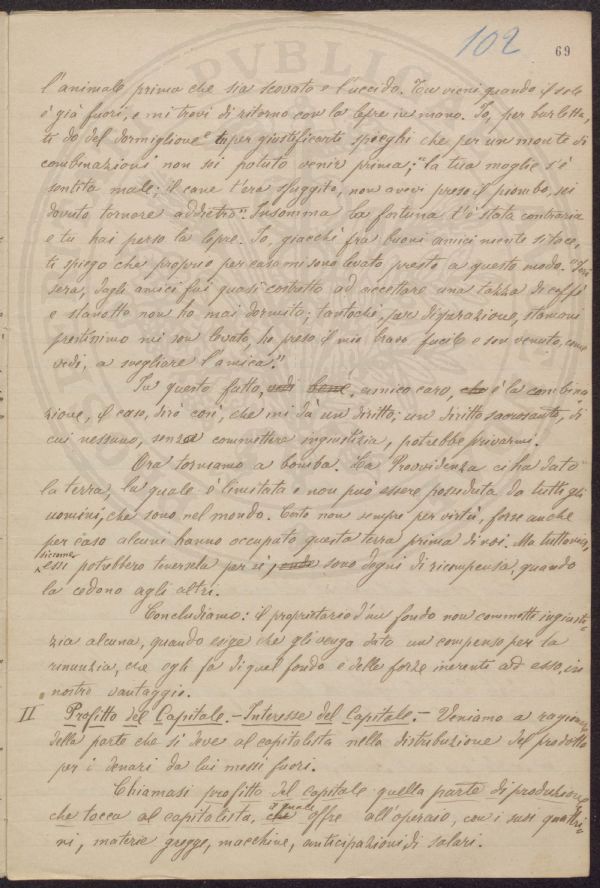 102
69
l'animale prima che sia scovato e l'uccido. Tu vieni, quando il sole
è già fuori, e mi trovi di ritorno con la lepre in mano. Io, per burletta,
ti do del dormiglione e tu per giustificarti spieghi che per un monte di
combinazioni non sei potuto venir prima; "la tua moglie s'è
sentita male; il cane t'era sfuggito, non avevi preso il piombo, sei
dovuto tornare addietro". Insomma la fortuna t'è stata contraria
e tu hai perso la lepre. Io, giacchè fra buoni amici niente si tace,
ti spiego che proprio per caso mi sono levato presto a questo modo. "Ieri
sera, dagli amici fui quasi costretto ad accettare una tazza di caffè
e stanotte non ho mai dormito; tantochè, per disperazione, stamani
prestissimo mi son levato, ho preso il mio bravo fucile e son venuto, come
vedi, a svegliare l'amica".
In questo fatto, vedi bene, amico caro, che è la combina-
zione, il caso, dirò così, che mi dà un diritto; un diritto sacrosanto, di
cui nessuno, senza commettere ingiustizia, potrebbe privarmi.
Ora torniamo a bomba. La Provvidenza ci ha dato
la terra, la quale è limitata e non può essere posseduta da tutti gli
uomini, che sono nel mondo. Certo non sempre per virtù, forse anche
per caso alcuni hanno occupato questa terra prima di voi. Ma tuttavia,
siccome
essi potrebbero tenersela per sè, onde sono degni di ricompensa, quando
la cedono agli altri.
Concludiamo: il proprietario d'un fondo non commette ingiusti-
zia alcuna, quando esige che gli venga dato un compenso per la
rinunzia, che egli fa di quel fondo e delle forze inerenti ad esso, in
nostro vantaggio.
II Profitto del Capitale. - Interesse del Capitale. - Veniamo a ragionare
della parte che si deve al capitalista nella distribuzione del prodotto
per i denari da lui messi fuori.
Chiamasi profitto del capitale quella parte di produzione
che tocca al capitalista, che il quale offre all'operaio, con i suoi quattri-
ni, materie gregge, macchine, anticipazioni di salari.